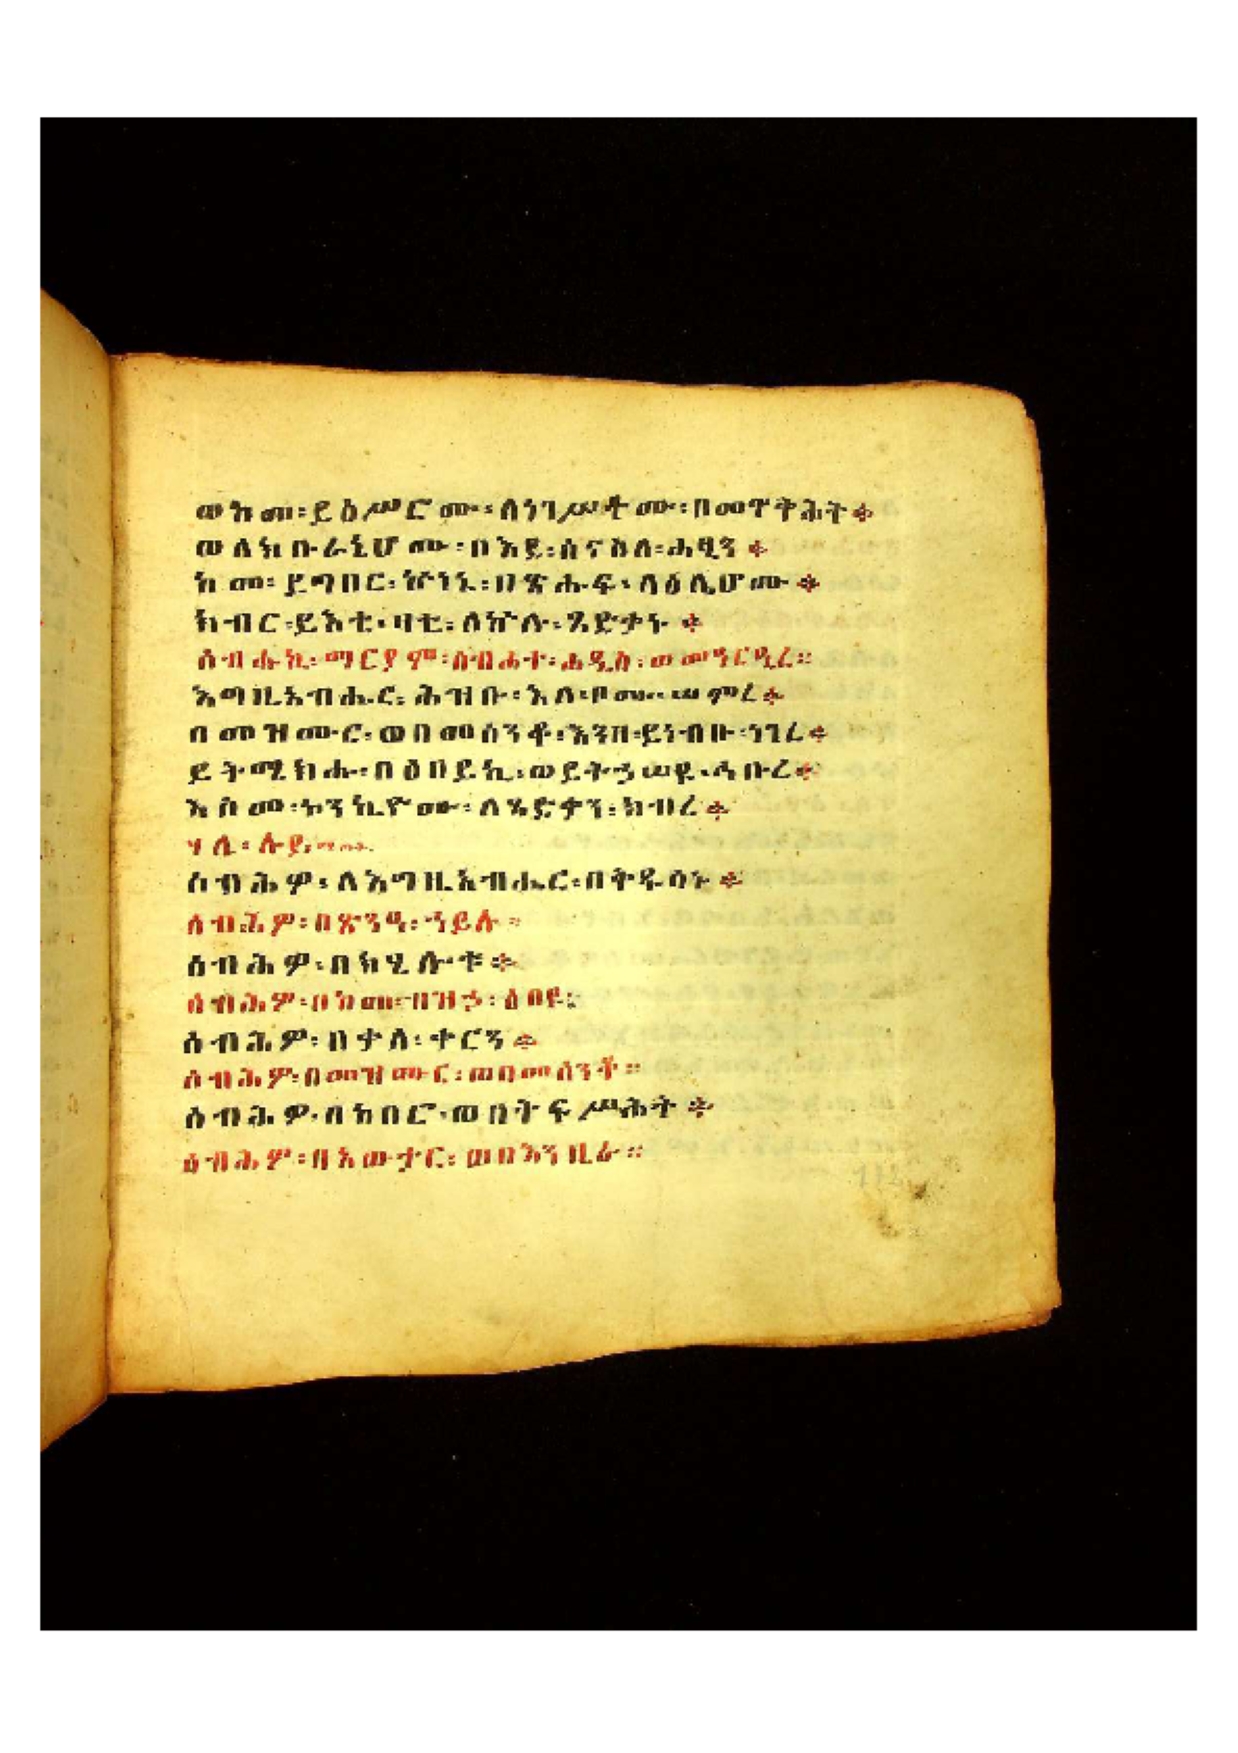 ወከመ፡ይዕሥርሙ፡ለነገሥቶሙ፡በመዋቅሕት።
ወለክቡራኒሆሙ፡በእደ፡ሰናስለ፡ሐፂን።
ከመ፡ይግበር፡ኵነኔ፡በጽሑፍ፡ላዕሌሆሙ።
ክብር፡ይእቲ፡ዛቲ፡ለኵሉ፡ጻድቃኑ።
ሰብሑኪ፡ማርያም፡ስብሐተ፡ሐዲስ፡
እግዚአብሔር፡ሕዝቡ፡እለ፡ቦሙ፡ሠምረ።
በመዝሙር፡ወበመሰንቆ፡እንዘ፡ይነብቡ፡ነገረ።
ይትሜክሑ፡በዕበይኪ፡ወይትኃሠዩ፡ኅቡረ።
እስመ፡አንኪዮሙ፡ለጻድቃን፡ክብረ።
ሃሌ፡ሉያ፡
ስብሕዎ፡ለእግዚአብሔር፡በቅዱሳኑ።
ሰብሕዎ፡በጽንዓ፡ኀይሉ።
ሰብሕዎ፡በክሂሎቱ።
ሰብሕዎ፡በከመ፡ብዝኃ፡ዕበዩ፡
ሰብሕዎ፡በቃለ፡ቀርን።
ሰብሕዎ፡በመዝሙር፡ወበመሰንቆ።
ሰብሕዎ፡በከበሮ፡ወበትፍሥሕት።
ሰብሕዎ፡በአውታር፡ወበእንዚራ።
112